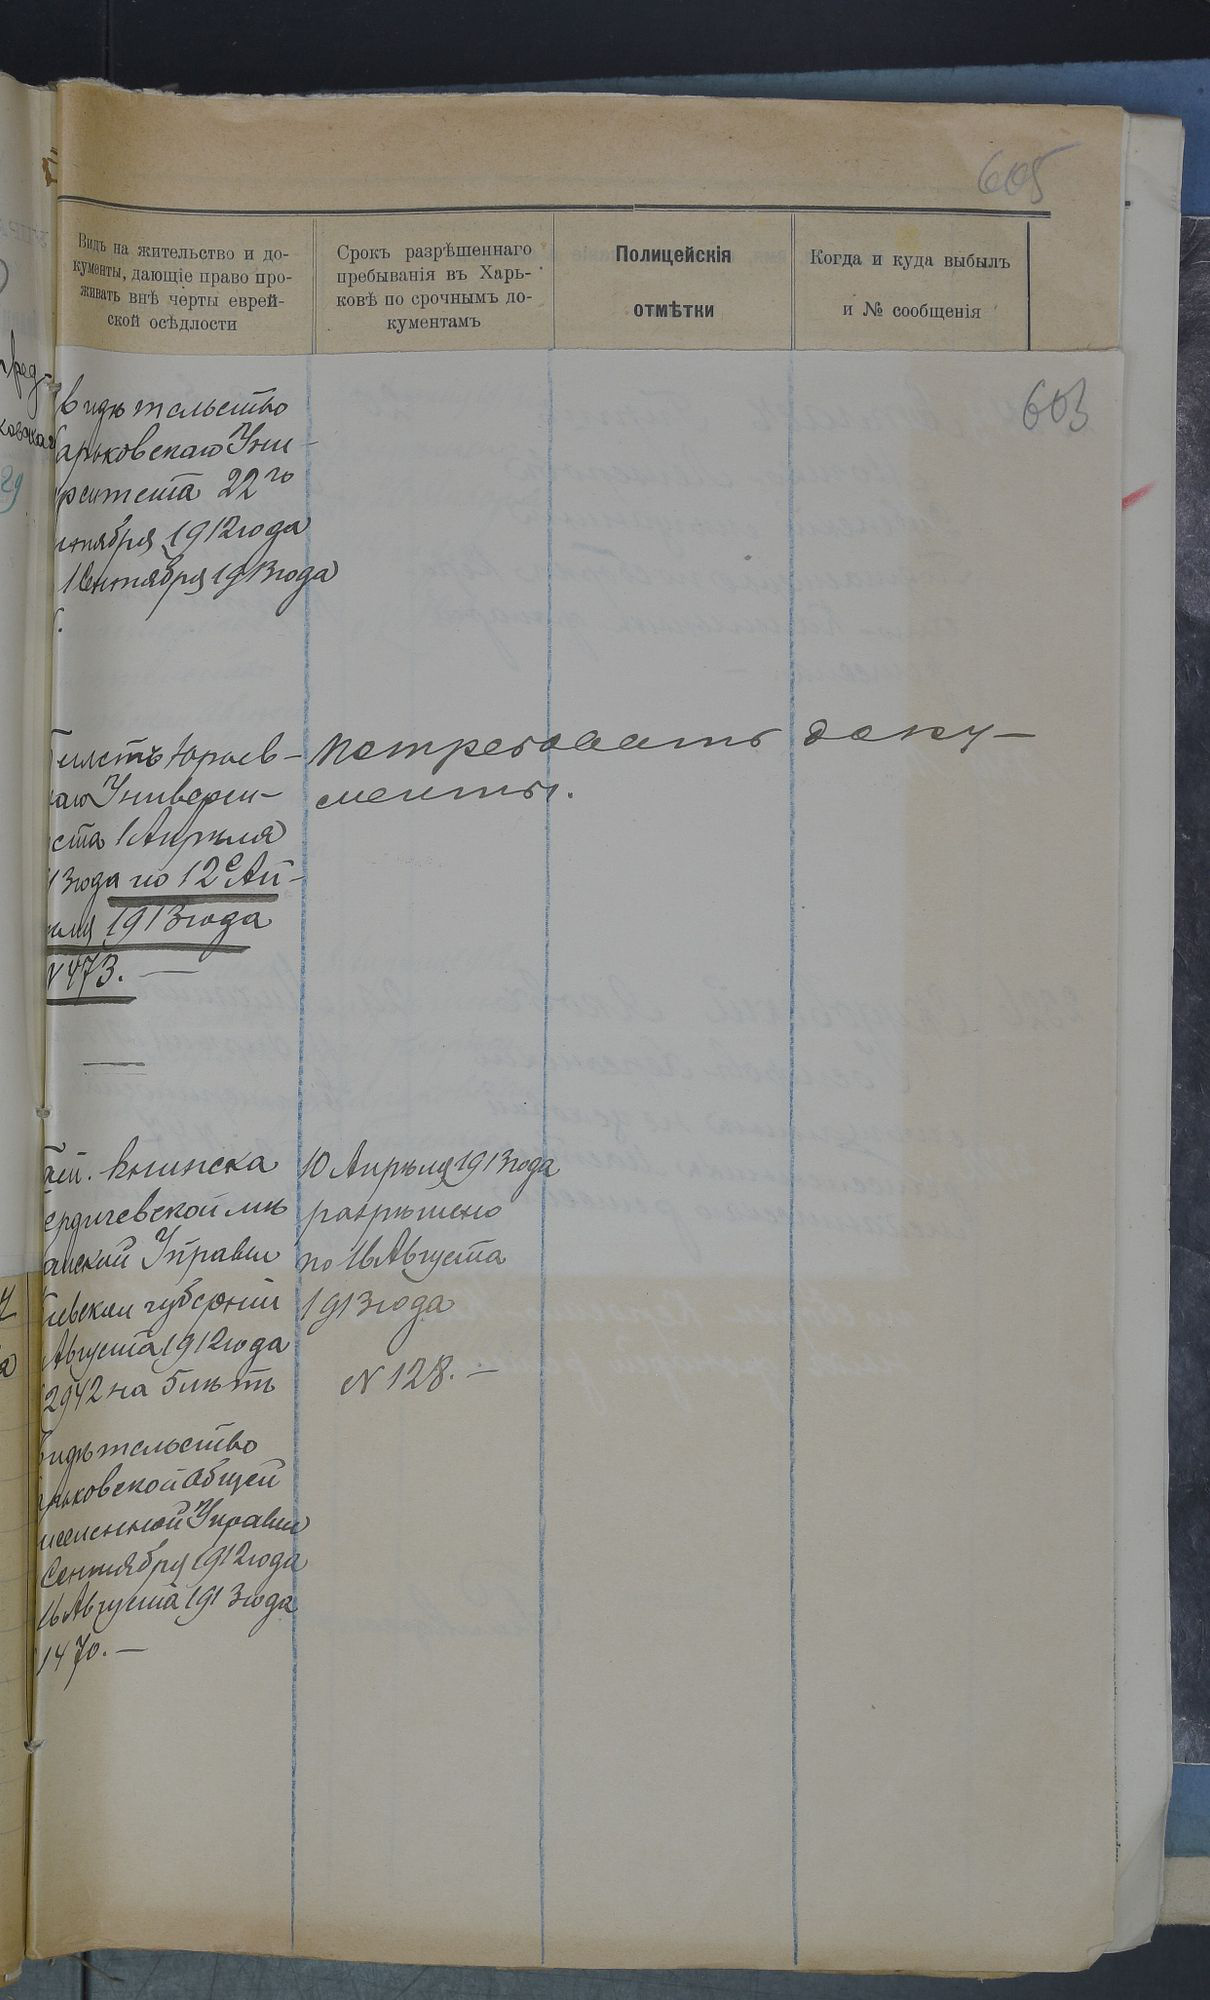 605
Видъ на жительство и до-
кументы, дающіе право про-
живать внѣ черты еврей-
ской осѣдлости
Срокъ разрѣшеннаго
пребыванія въ Харь-
ковѣ по срочнымъ до-
кументамъ
Полицейскія
отмѣтки
Когда и куда выбылъ
и № сообщенія
603
видѣтельство
арьковскаго Уни-
рситета 22го
нтября 1912 года
1 Сентября 1913 года
илетъ Юрьев-
каго Универси-
ета 1 Апрѣля
13 года по 12е Ап-
рѣля 1913 года
N 473. —
Потребовать доку-
менты.
книжка
ердичевской мѣ
анской Управы
іевской губерніи
Августа 1912 года
2942 на 5 лѣтъ
10 Апрѣля 1913 года
разрѣшено
по 16 Августа
1913 года
N 128. —
видѣтельство
рьковской общей
месленной Управы
Сентября 1912 года
16 Августа 1913 года
1470. —